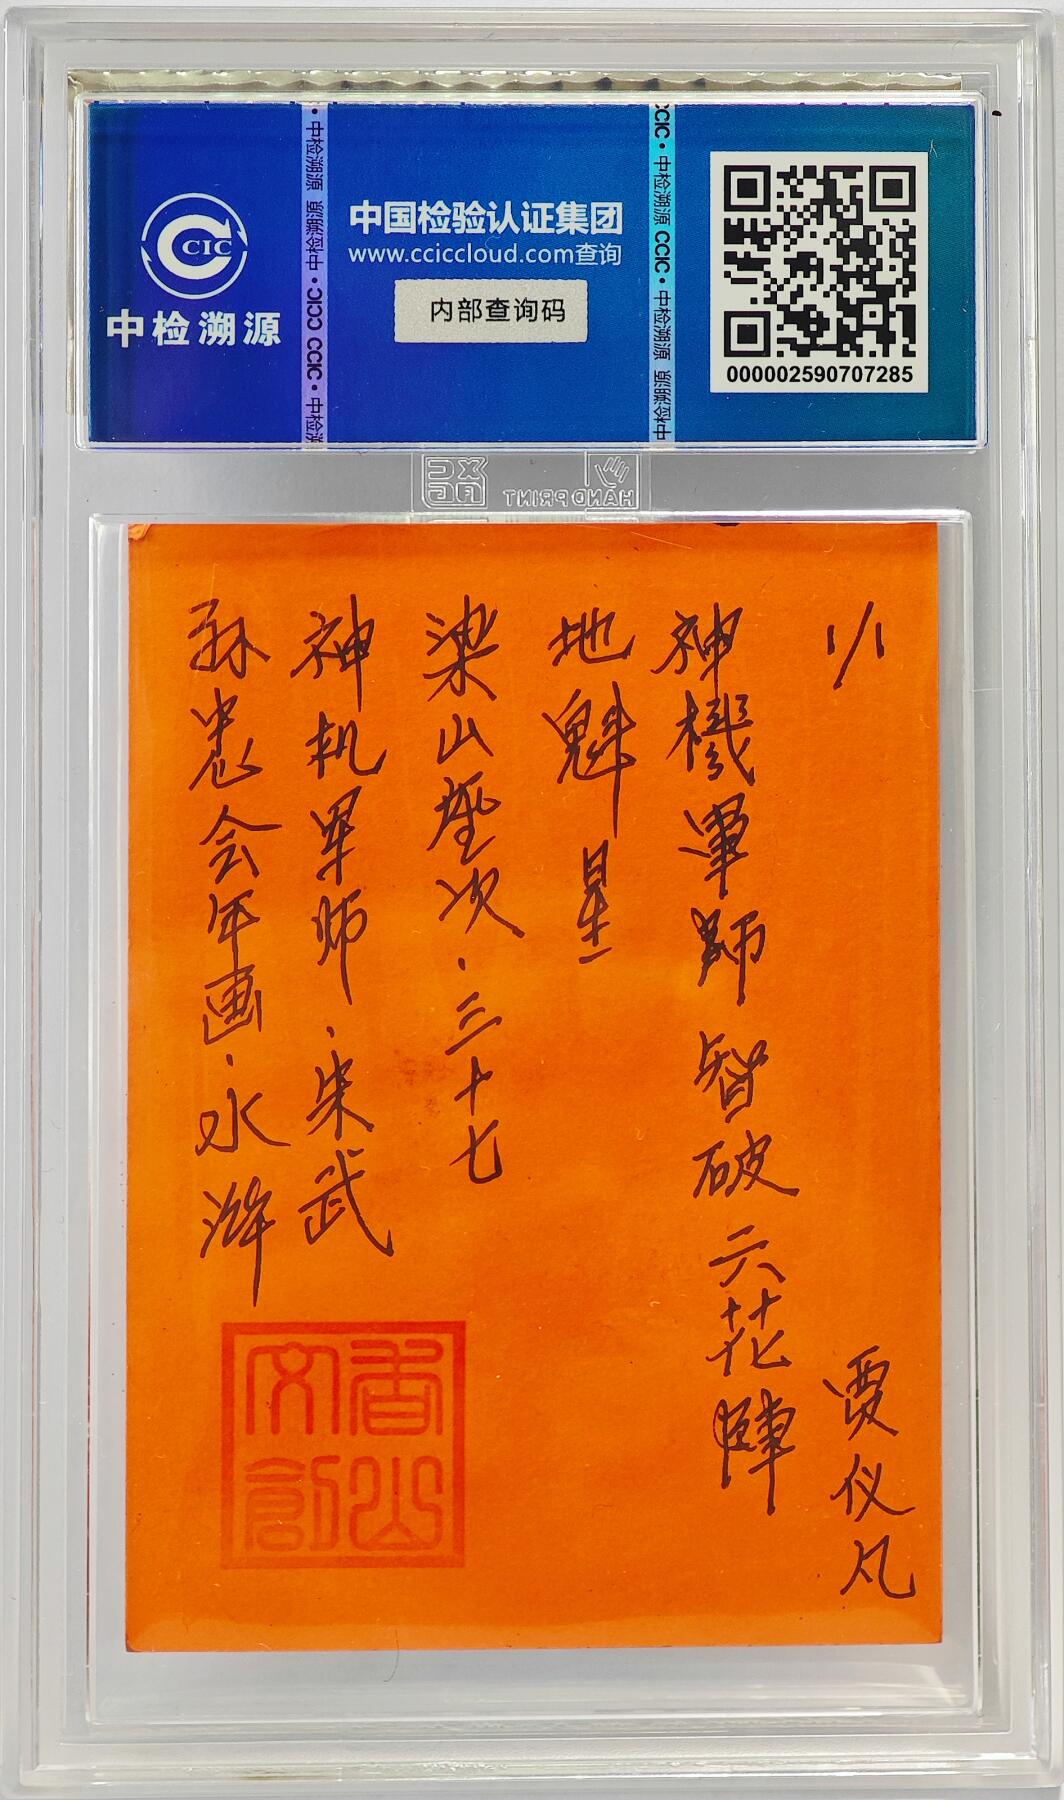 CCIC
中检溯源
中国检验认证集团
www.cciccloud.com查询
内部查询码
000002590707285
中检溯源 CCIC · 中检溯源
CCIC · 中检溯源 CCIC · 中检溯源
HAND PRINT
1/1
贾仪凡
神機軍師智破六花陣
地魁星
梁山座次·三十七
神机军师·朱武
孙忠会年画·水浒
香山文創